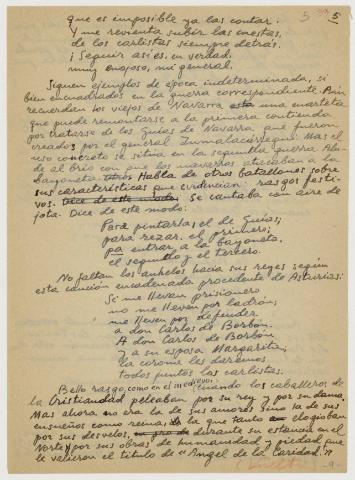 5
5
que es imposible ya las contar.
Y me revienta subir las cuestas,
de los carlistas siempre detrás.
¡Seguir así es, en verdad,
muy enojoso, mi general.
Siguen ejemplos de época indeterminada, si
bien encuadrados en la guerra correspondiente. Aún
recuerdan los viejos de Navarra esta una cuarteta
que puede remontarse a la primera contienda
por tratarse de los Guías de Navarra, que fueron
creados por el general Zumalacárregui. Mas el
uso concreto se sitúa en la segunda guerra. Alu-
de al brío con que los navarros atacaban a la
bayoneta. Habla de otros batallones sobre
sus características que evidencian rasgos festi-
vos. Dice de este modo: Se cantaba con aire de
jota. Dice de este modo:
Para pintarla, el de Guías;
para rezar, el primero;
pa entrar, a la bayoneta,
el segundo y el tercero.
No faltan los anhelos hacia sus reyes según
esta canción encadenada procedente de Asturias:
Si me llevan prisionero
no me lleven por ladrón;
me lleven por defender
a don Carlos de Borbón.
A don Carlos de Borbón
y a su esposa Margarita,
la corona les daremos
todos juntos los carlistas.
Bello rasgo, como en el medievo: cuando los caballeros de
la Cristiandad peleaban por su rey y por su dama.
Mas ahora no era la de sus amores sino la de sus
ensueños como reina, de la que tanto elogiaban
por sus desvelos, durante su estancia en el
Norte, y por sus obras de humanidad y piedad que
le valieron el título de "Angel de la Caridad."
-9-